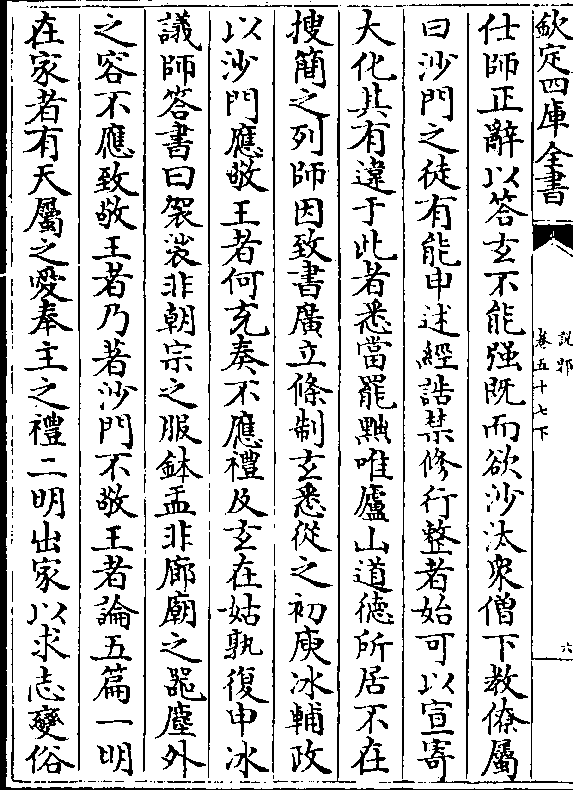 欽定四庫全書
說郛
卷五十七下
六
仕師正辭以答玄不能强既而欲沙汰衆僧下教僚屬
曰沙門之徒有能申述經誥禁修行整者始可以宣寄
大化其有違于此者悉當罷黜唯廬山道德所居不在
搜簡之列師因致書廣立條制玄悉從之初庾冰輔政
以沙門應敬王者何充奏不應禮及玄在姑孰復申冰
議師答書曰袈裟非朝宗之服鉢盂非廊廟之噐塵外
之容不應致敬王者乃著沙門不敬王者論五篇一明
在家者有天屬之愛奉主之禮二明出家以求志變俗